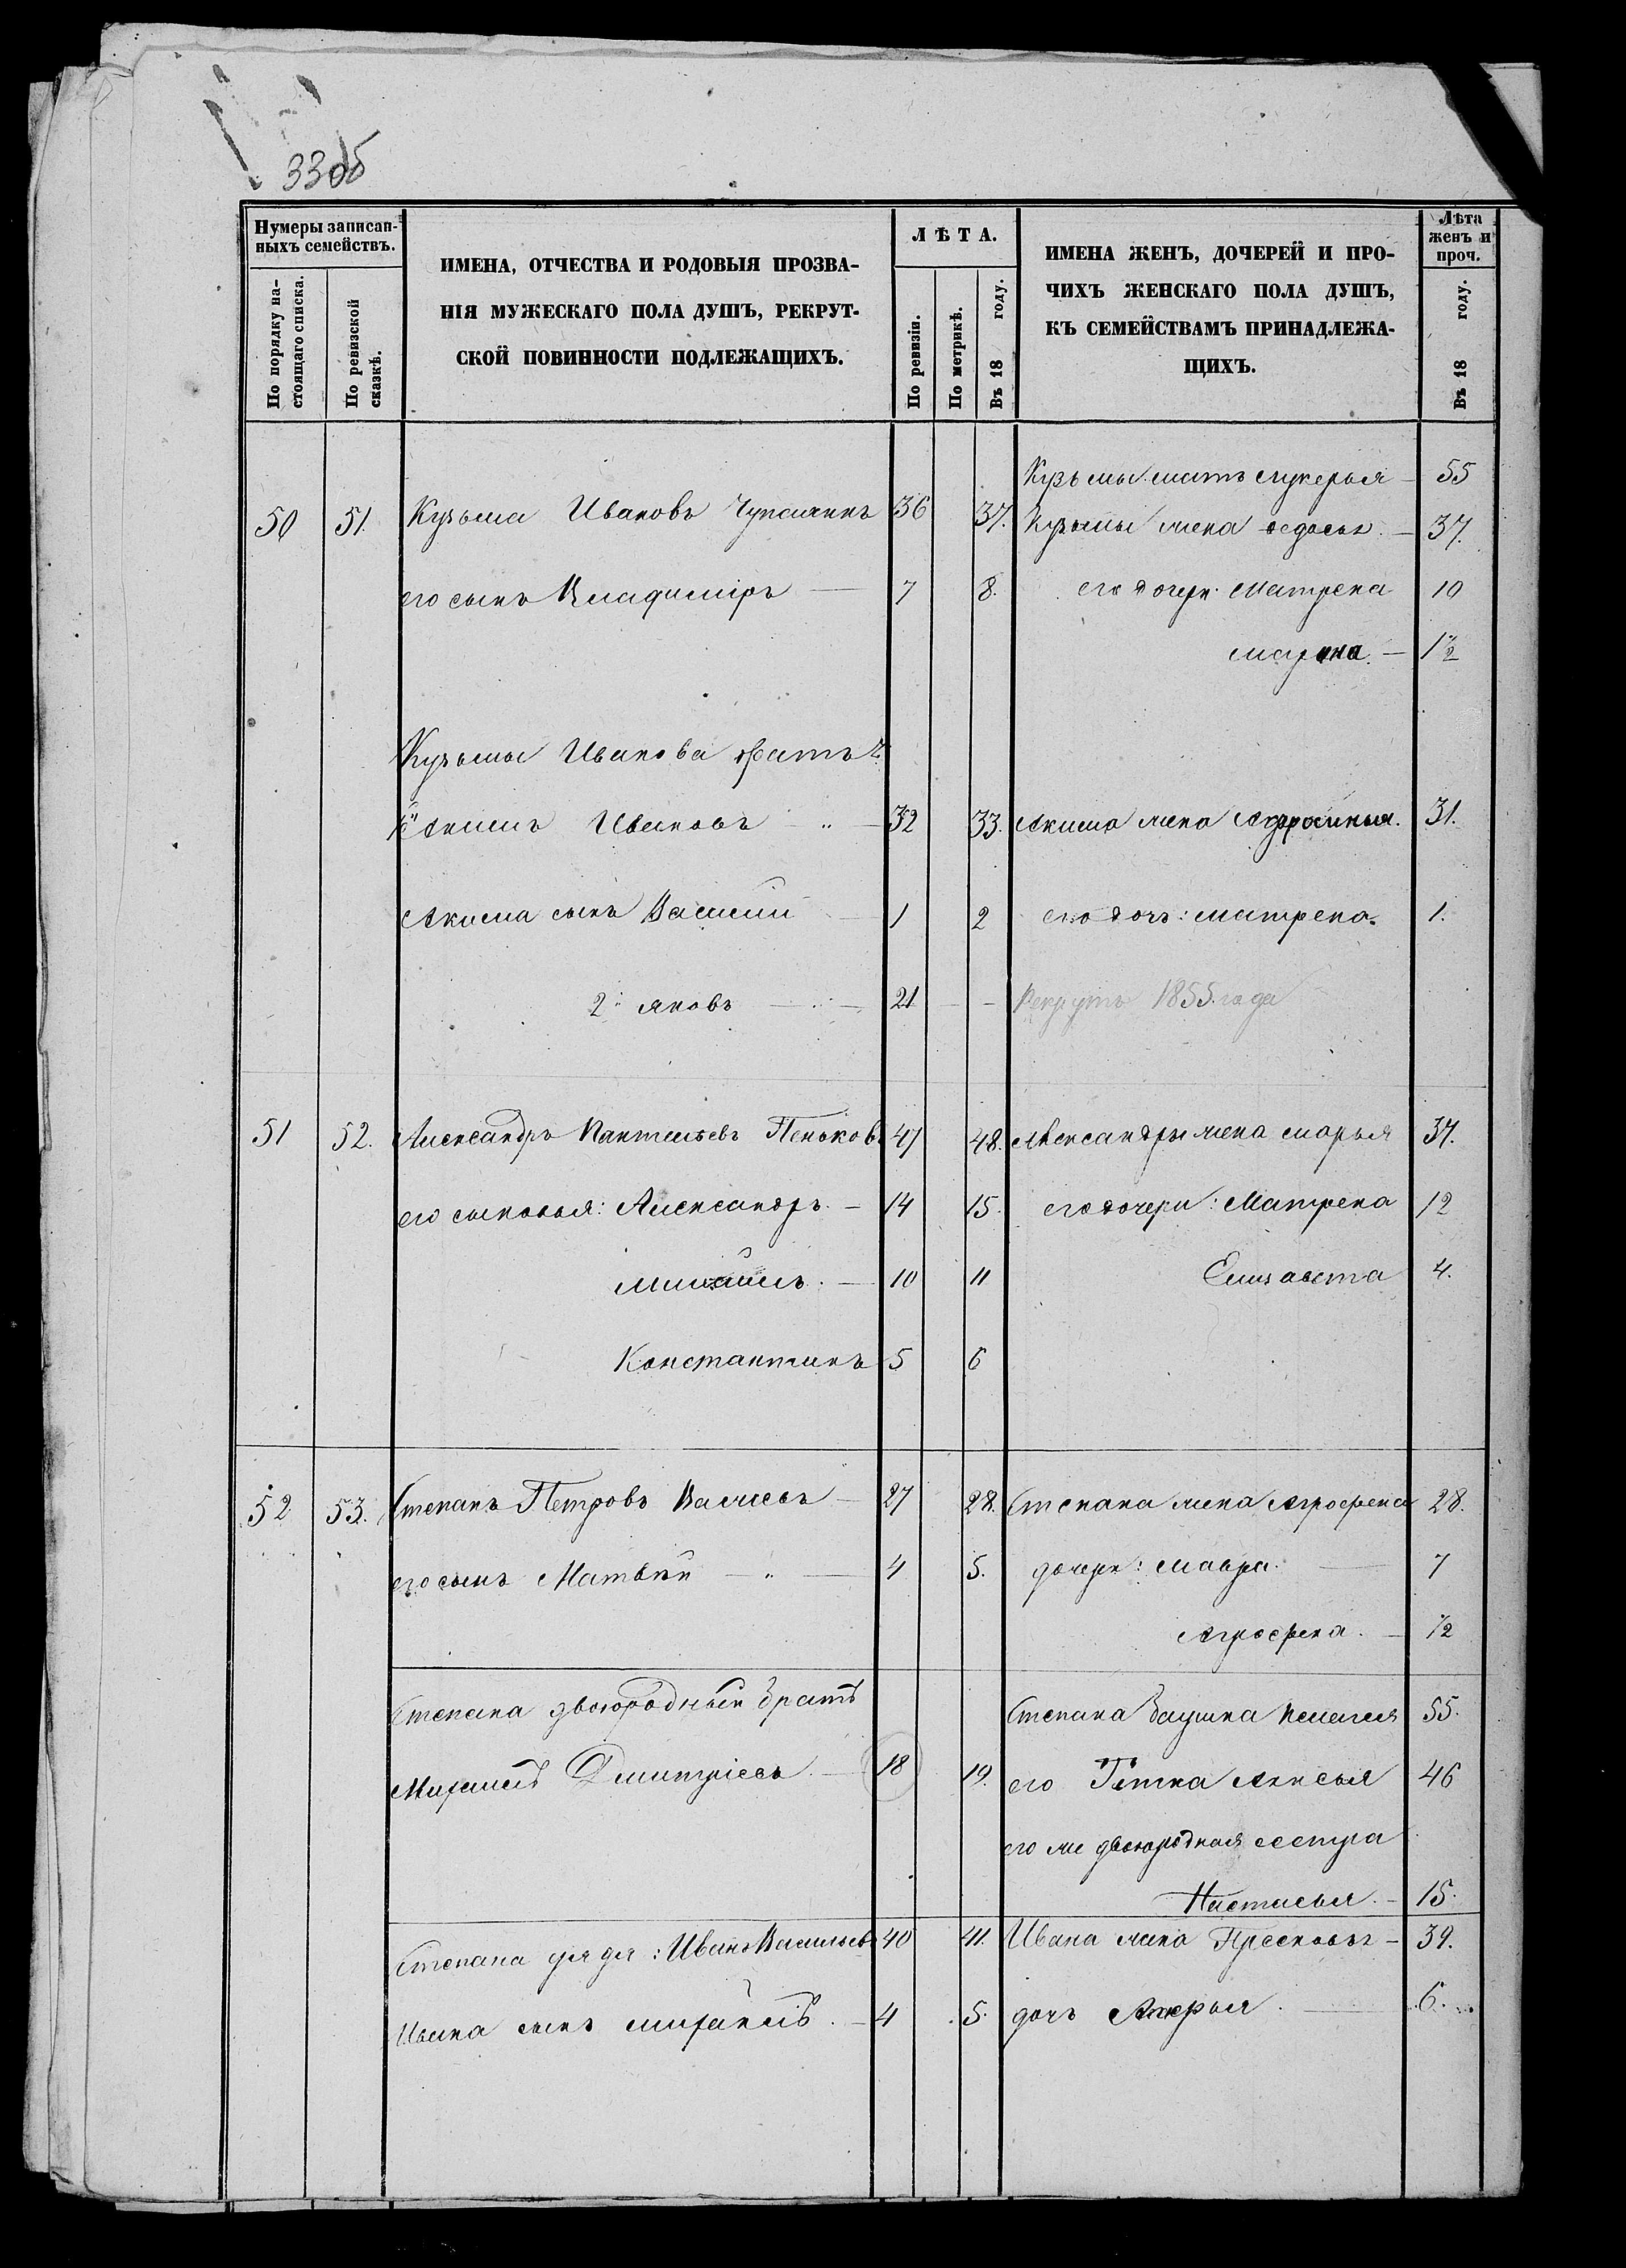 33об
Нумеры записан-
ныхъ семействъ.
По порядку на-
стоящаго списка.
По ревизской
сказкѣ.
ИМЕНА, ОТЧЕСТВА И РОДОВЫЯ ПРОЗВА-
НІЯ МУЖЕСКАГО ПОЛА ДУШЪ, РЕКРУТ-
СКОЙ ПОВИННОСТИ ПОДЛЕЖАЩИХЪ.
ЛѢТА.
По ревизіи.
По метрикѣ.
Въ 18 году.
ИМЕНА ЖЕНЪ, ДОЧЕРЕЙ И ПРО-
ЧИХЪ ЖЕНСКАГО ПОЛА ДУШЪ,
КЪ СЕМЕЙСТВАМЪ ПРИНАДЛЕЖА-
ЩИХЪ.
Лѣта
женъ и
проч.
Въ 18 году.
Кузьмы мать Лукерья 55
50 51. Кузьма Ивановъ 36 37. Кузьмы жена Федосья 37.
его сынъ Владиміръ 7 8. его дочери: Матрена 10
Марина 1 1/2
Кузьмы Иванова братья
1й Акимъ Ивановъ 32 33. Акима жена 31.
Акима сынъ Василій 1 2 его дочь: Матрена 1.
2й Яковъ 21 - Рекрутъ 1855 года
51 52. Александръ Пантелѣевъ Пеньковъ 47 48. Александры жена Марья 37.
его сыновья: Александръ 14 15. его дочери: Матрена 12
Михаилъ 10 11 Елизавета 4.
Константинъ 5 6
52 53. Степанъ Петровъ 27 28. Степана жена Агрофена 28.
его сынъ Матвѣй 4 5. дочери: Мавра 7
Агрофена 1/2
Степана двоюродный братъ
Степана Пелагея 55.
Михаилъ Дмитріевъ 18 19. его Тетка Анисья 46
его же двоюродная сестра
Настасья 15.
Степана дядя: Иванъ Васильевъ 40 41. Ивана жена Просковья 39.
Ивана сынъ Михаилъ 4 5. дочь 6.